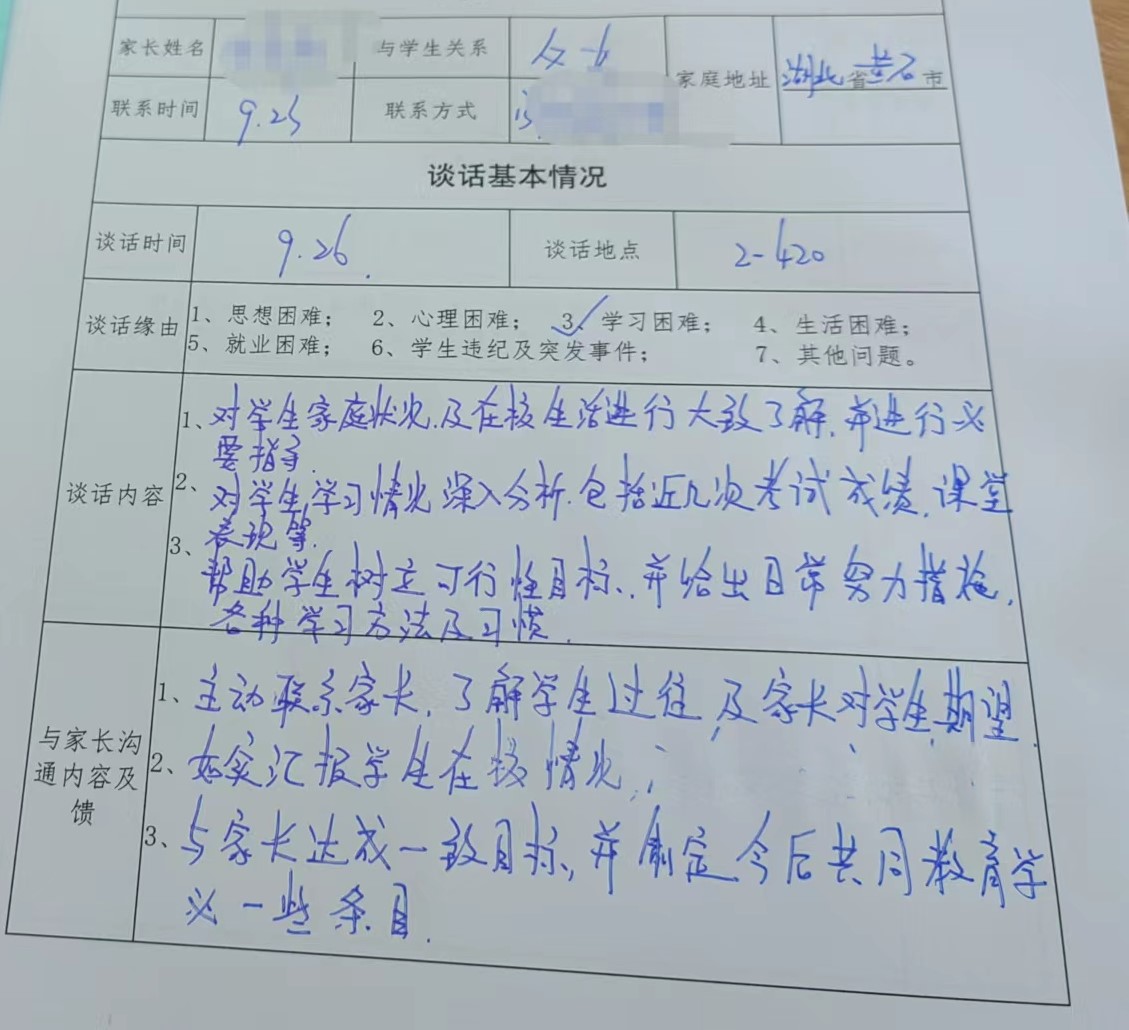 家长姓名 与学生关系 父-子 家庭地址 湖北省黄石市
联系时间 9.25 联系方式
谈话基本情况
谈话时间 9.26. 谈话地点 2-420
谈话缘由 1、思想困难； 2、心理困难； 3、学习困难； 4、生活困难；
5、就业困难； 6、学生违纪及突发事件； 7、其他问题。
谈话内容
1、对学生家庭状况.及在校生活进行大致了解.并进行必
要指导.
2、对学生学习情况深入分析.包括近几次考试成绩.课堂
表现等.
3、帮助学生树立可行性目标.并给出日常努力措施.
各种学习方法及习惯.
与家长沟
通内容及
馈
1、主动联系家长.了解学生过往,及家长对学生期望.
2、如实汇报学生在校情况;
3、与家长达成一致目标,并制定今后共同教育学
一些条目.